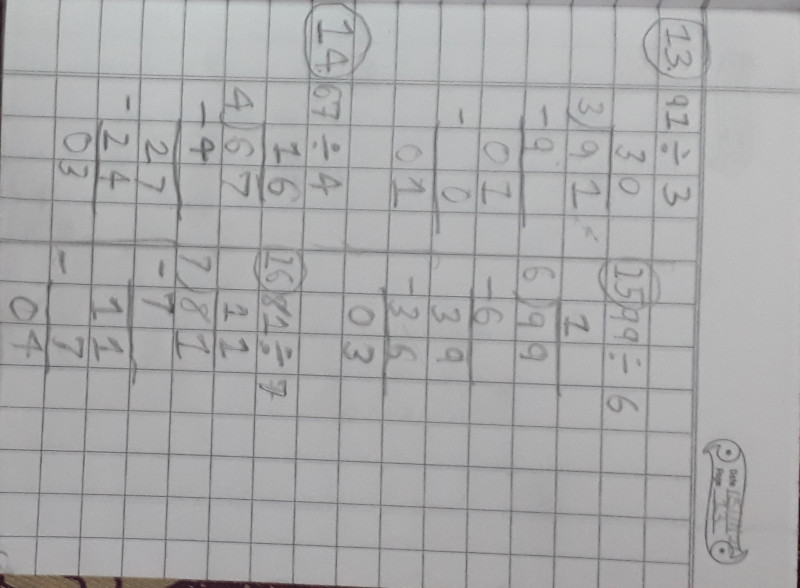 Date
Page
13 91÷3
30
3)91
-9
01
- 0
01
14 67÷4
16
4)67
-4
27
-24
03
15 99÷6
1
6)99
-6
39
-36
03
16 81÷7
11
7)81
-7
11
- 7
04